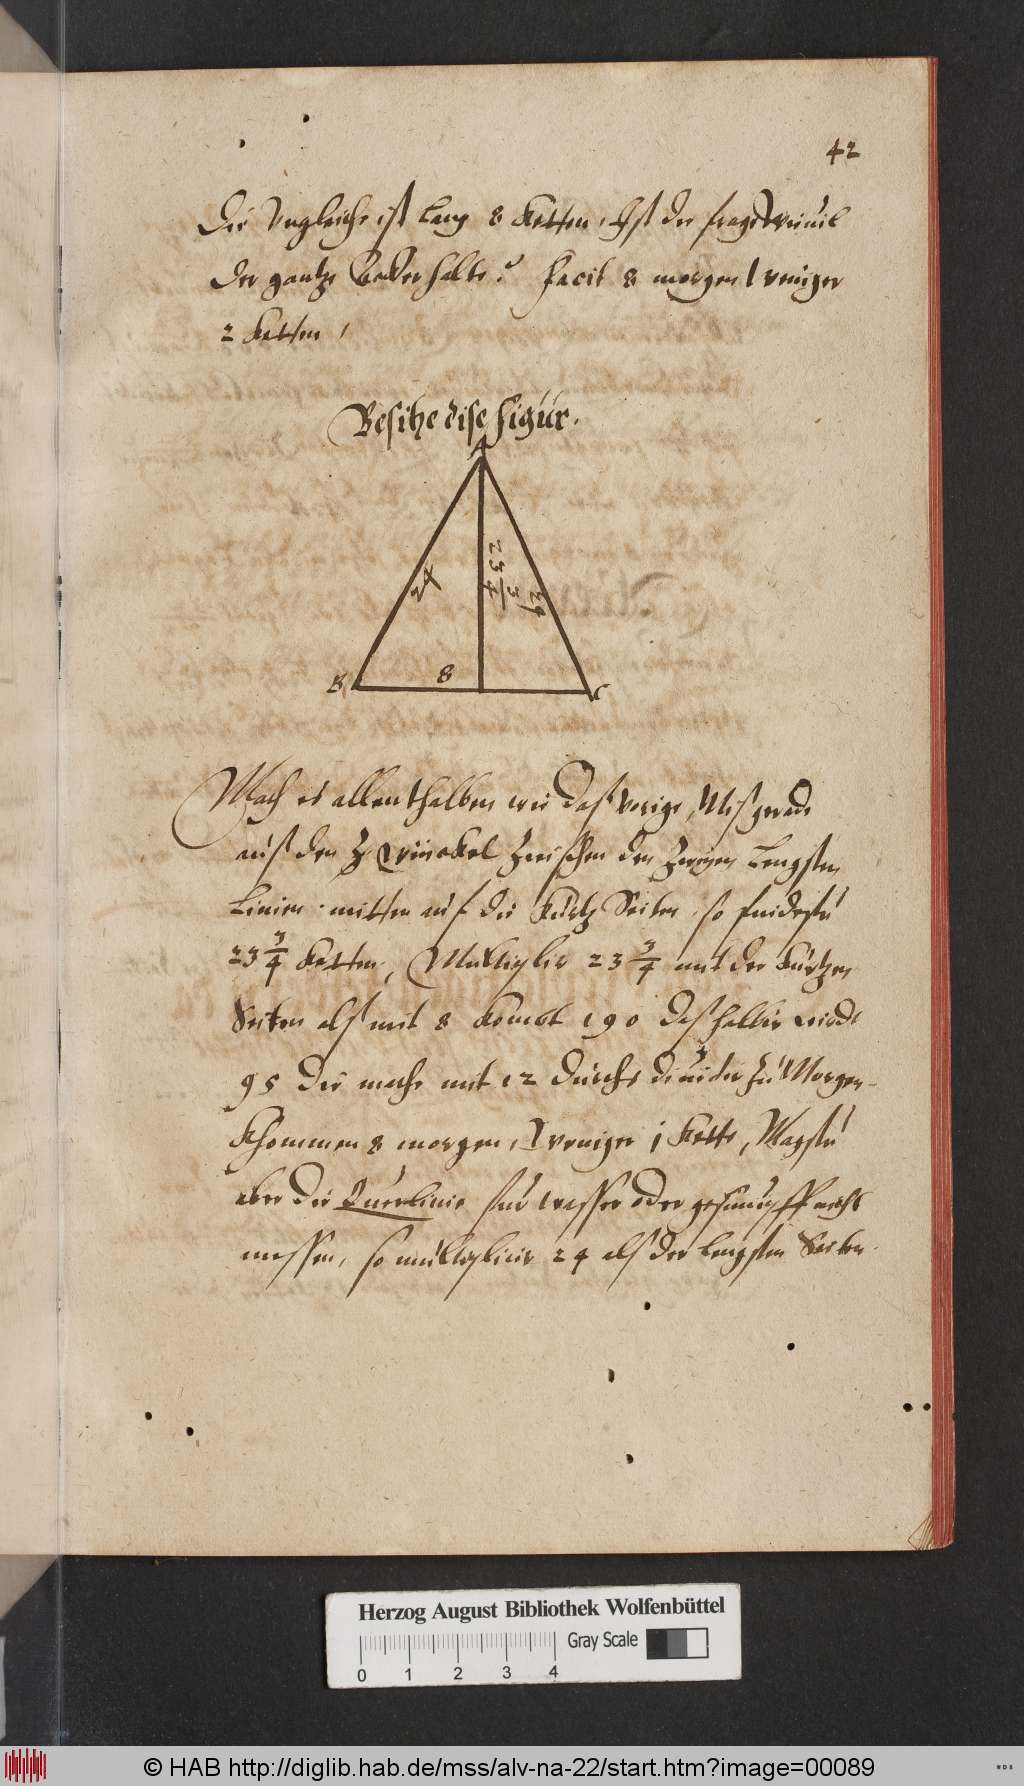 42
Die Ungleiche ist lang 8 Ketten, Ist die frage wieuil
der gantze Acker halte? facit 8 morgen weniger
2 Ketten,
Besihe dise figur.
A
24
23 3/4
24
B
8
C
Mach es allenthalben wie das vorige, Mis gerade
aus den winckel zwischen den zweyen Lengsten
Linien mitten auf die kurtz Seiten so findestu
23 3/4 Ketten, Multiplir 23 3/4 mit der kurtzen
Seiten als mit 8 kombt 190 das halbir wirdt
95 die mache mit 12 durchs diuidir zu Morgen
khommen 8 morgen, weniger 1 Kette, Magstu
aber die Querlinie fur wasser oder gesumpff nicht
messen, so multiplicir 24 als der lengsten Seiten
Herzog August Bibliothek Wolfenbüttel
Gray Scale
0 1 2 3 4
© HAB http://diglib.hab.de/mss/alv-na-22/start.htm?image=00089